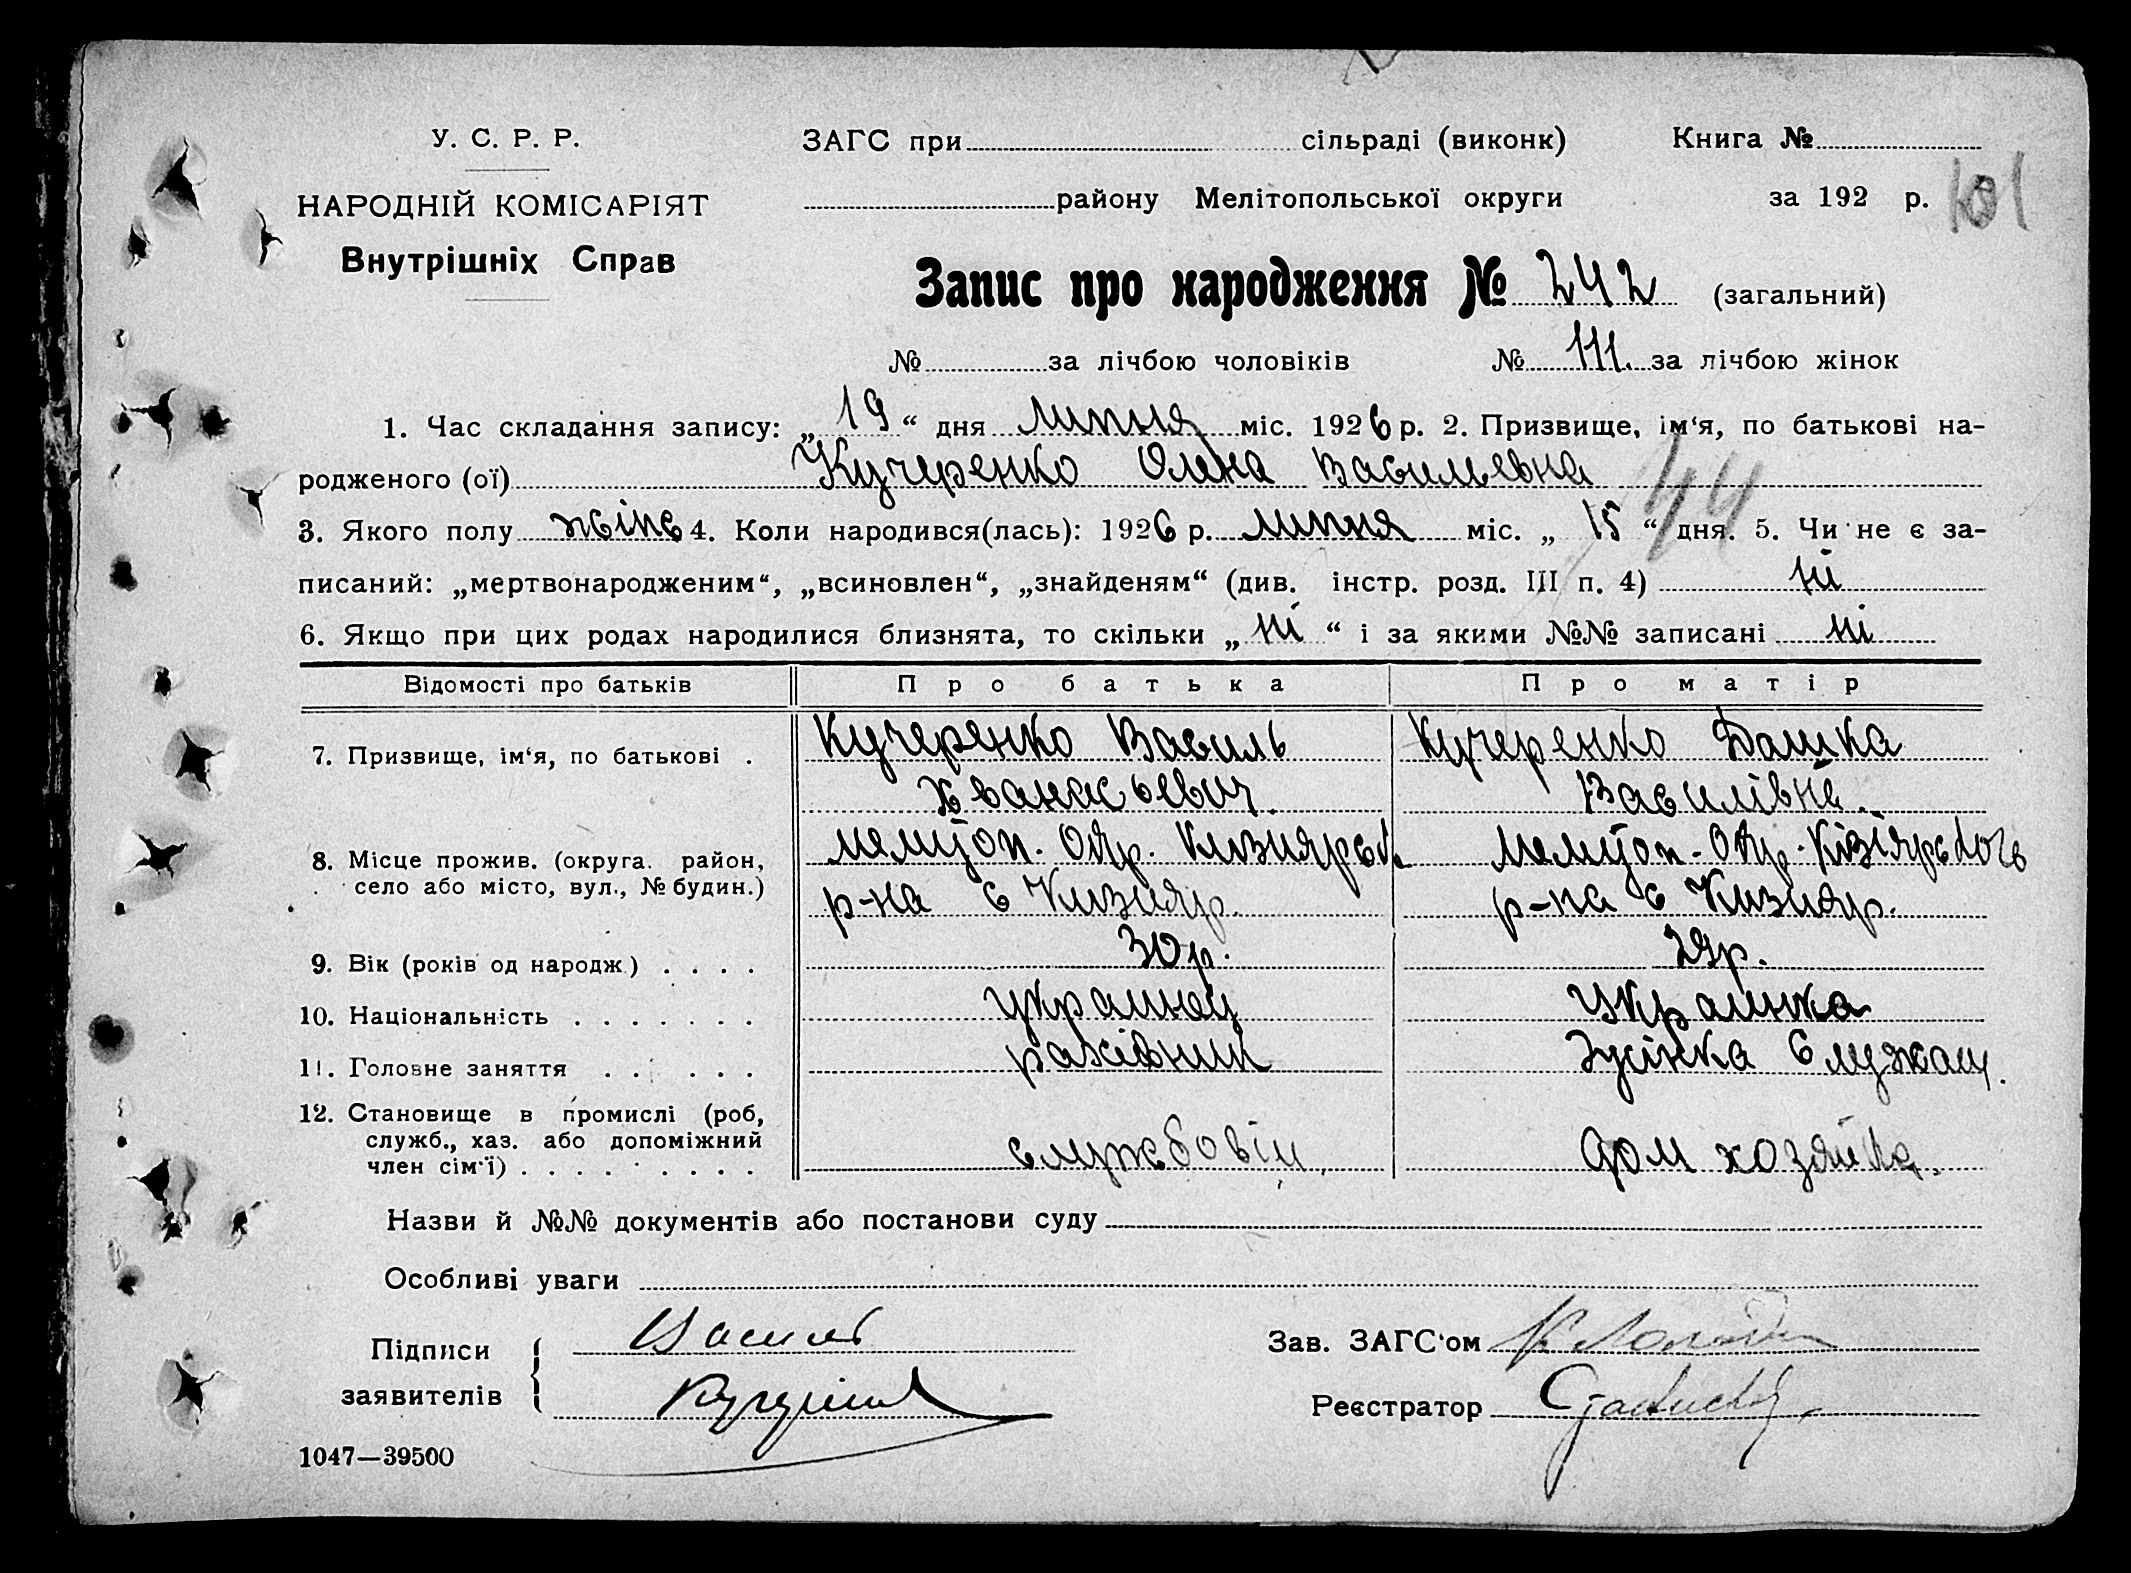 У. С. Р. Р.
НАРОДНІЙ КОМІСАРІЯТ
Внутрішніх Справ
ЗАГС при сільраді (виконк) Книга №
району Мелітопольської округи за 192 р. 101
Запис про народження № 242 (загальний)
№ за лічбою чоловіків № 111. за лічбою жінок
1. Час складання запису: „ 19 “ дня липня міс. 1926 р. 2. Призвище, ім‘я, по батькові на-
родженого (ої) Кучеренко Олена Васильевна
44
3. Якого полу жіно 4. Коли народився(лась): 1926 р. липня міс. „ 15 “ дня. 5. Чи не є за-
писаний: „мертвонародженим“, „всиновлен“, „знайденям“ (див. інстр. розд. III п. 4) ні
6. Якщо при цих родах народилися близнята, то скільки „ ні “ і за якими №№ записані ні
Відомості про батьків Про батька Про матір
7. Призвище, ім‘я, по батькові . Кучеренко Василь Кучеренко Дашка
Василівна.
8. Місце прожив. (округа. район, Мелітоп. Окр. Кизиярськ Мелітоп. Окр. Кізіярського
село або місто, вул., № будин.) р-на с Кизияр. р-на с Кизияр.
9. Вік (років од народж.) . . . . 30 р. 29 р.
10. Національність . . . . . . . украинец украинка
11. Головне заняття . . . . . . рахівник Жінка служащ.
12. Становище в промислі (роб,
служб., хаз. або допоміжний
член сім‘ї) . . . . . . . . . службовіц. дом хозяйка.
Назви й №№ документів або постанови суду
Особливі уваги
Підписи Василь Зав. ЗАГС‘ом
заявителів Реєстратор
1047—39500